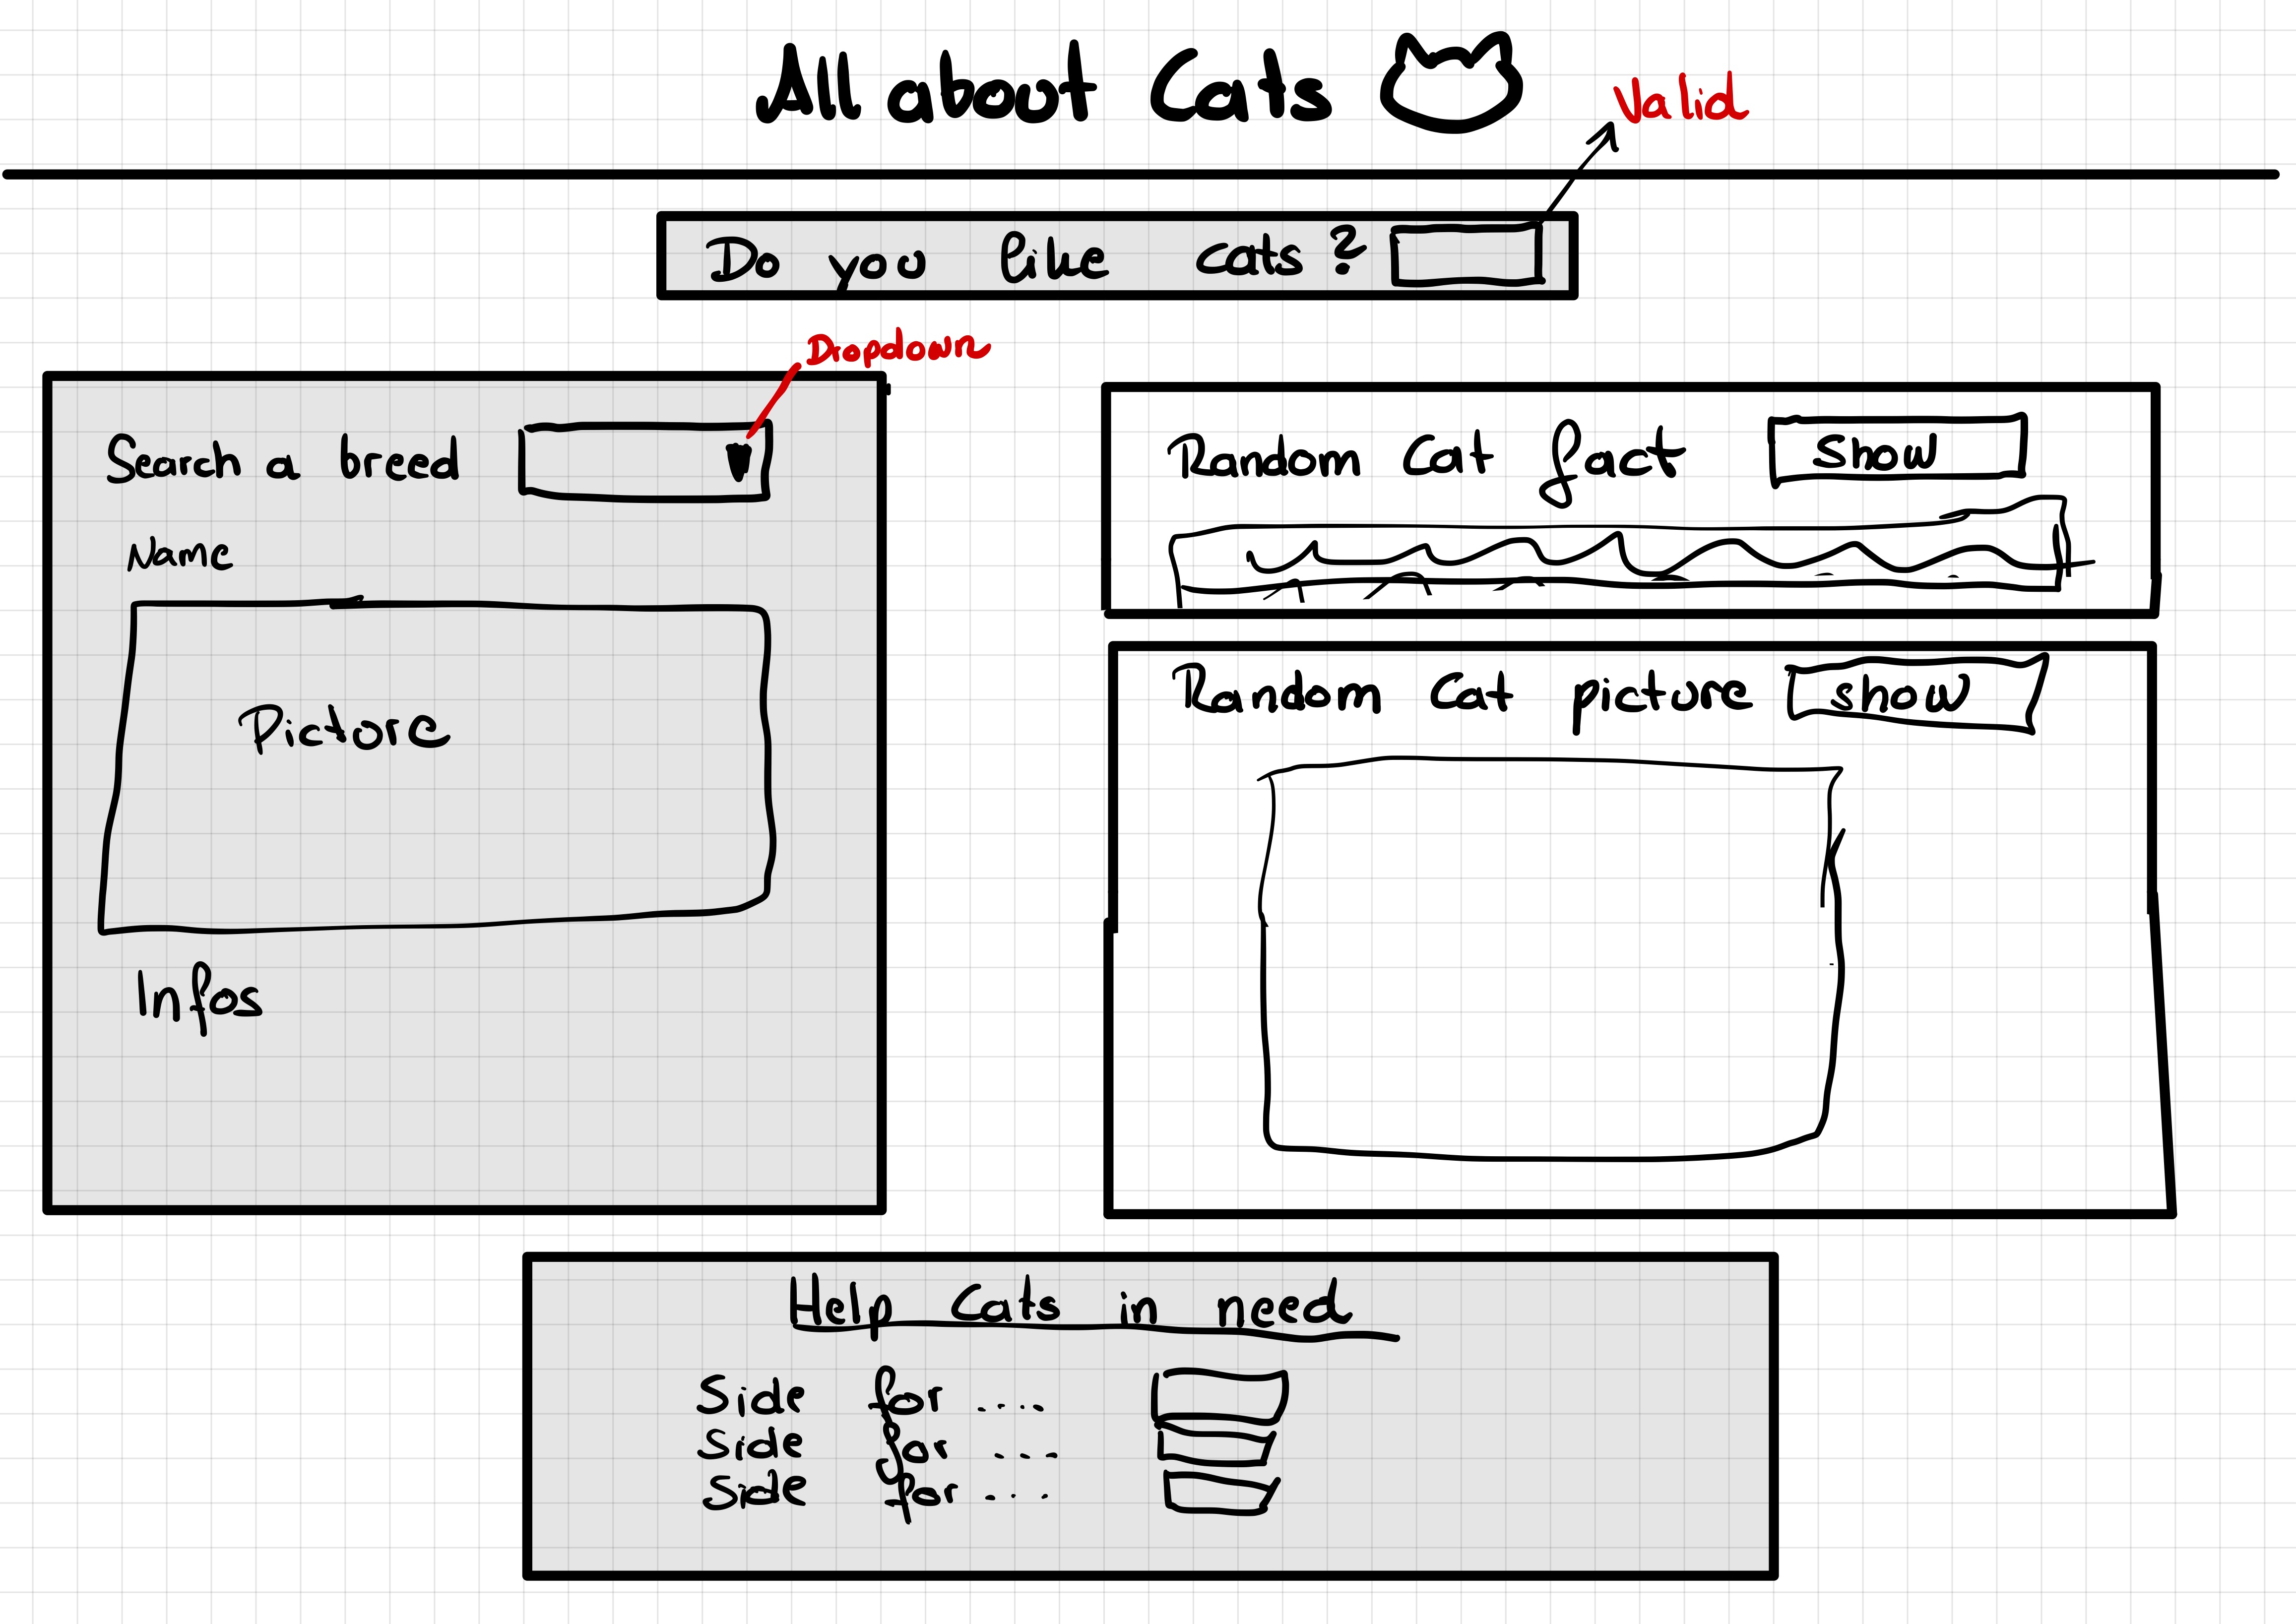 All about Cats
Valid
Do you like cats?
Dropdown
Search a breed
Name
Picture
Infos
Random Cat fact
Show
Random Cat picture
show
Help Cats in need
Side for ....
Side for ...
Side for ...